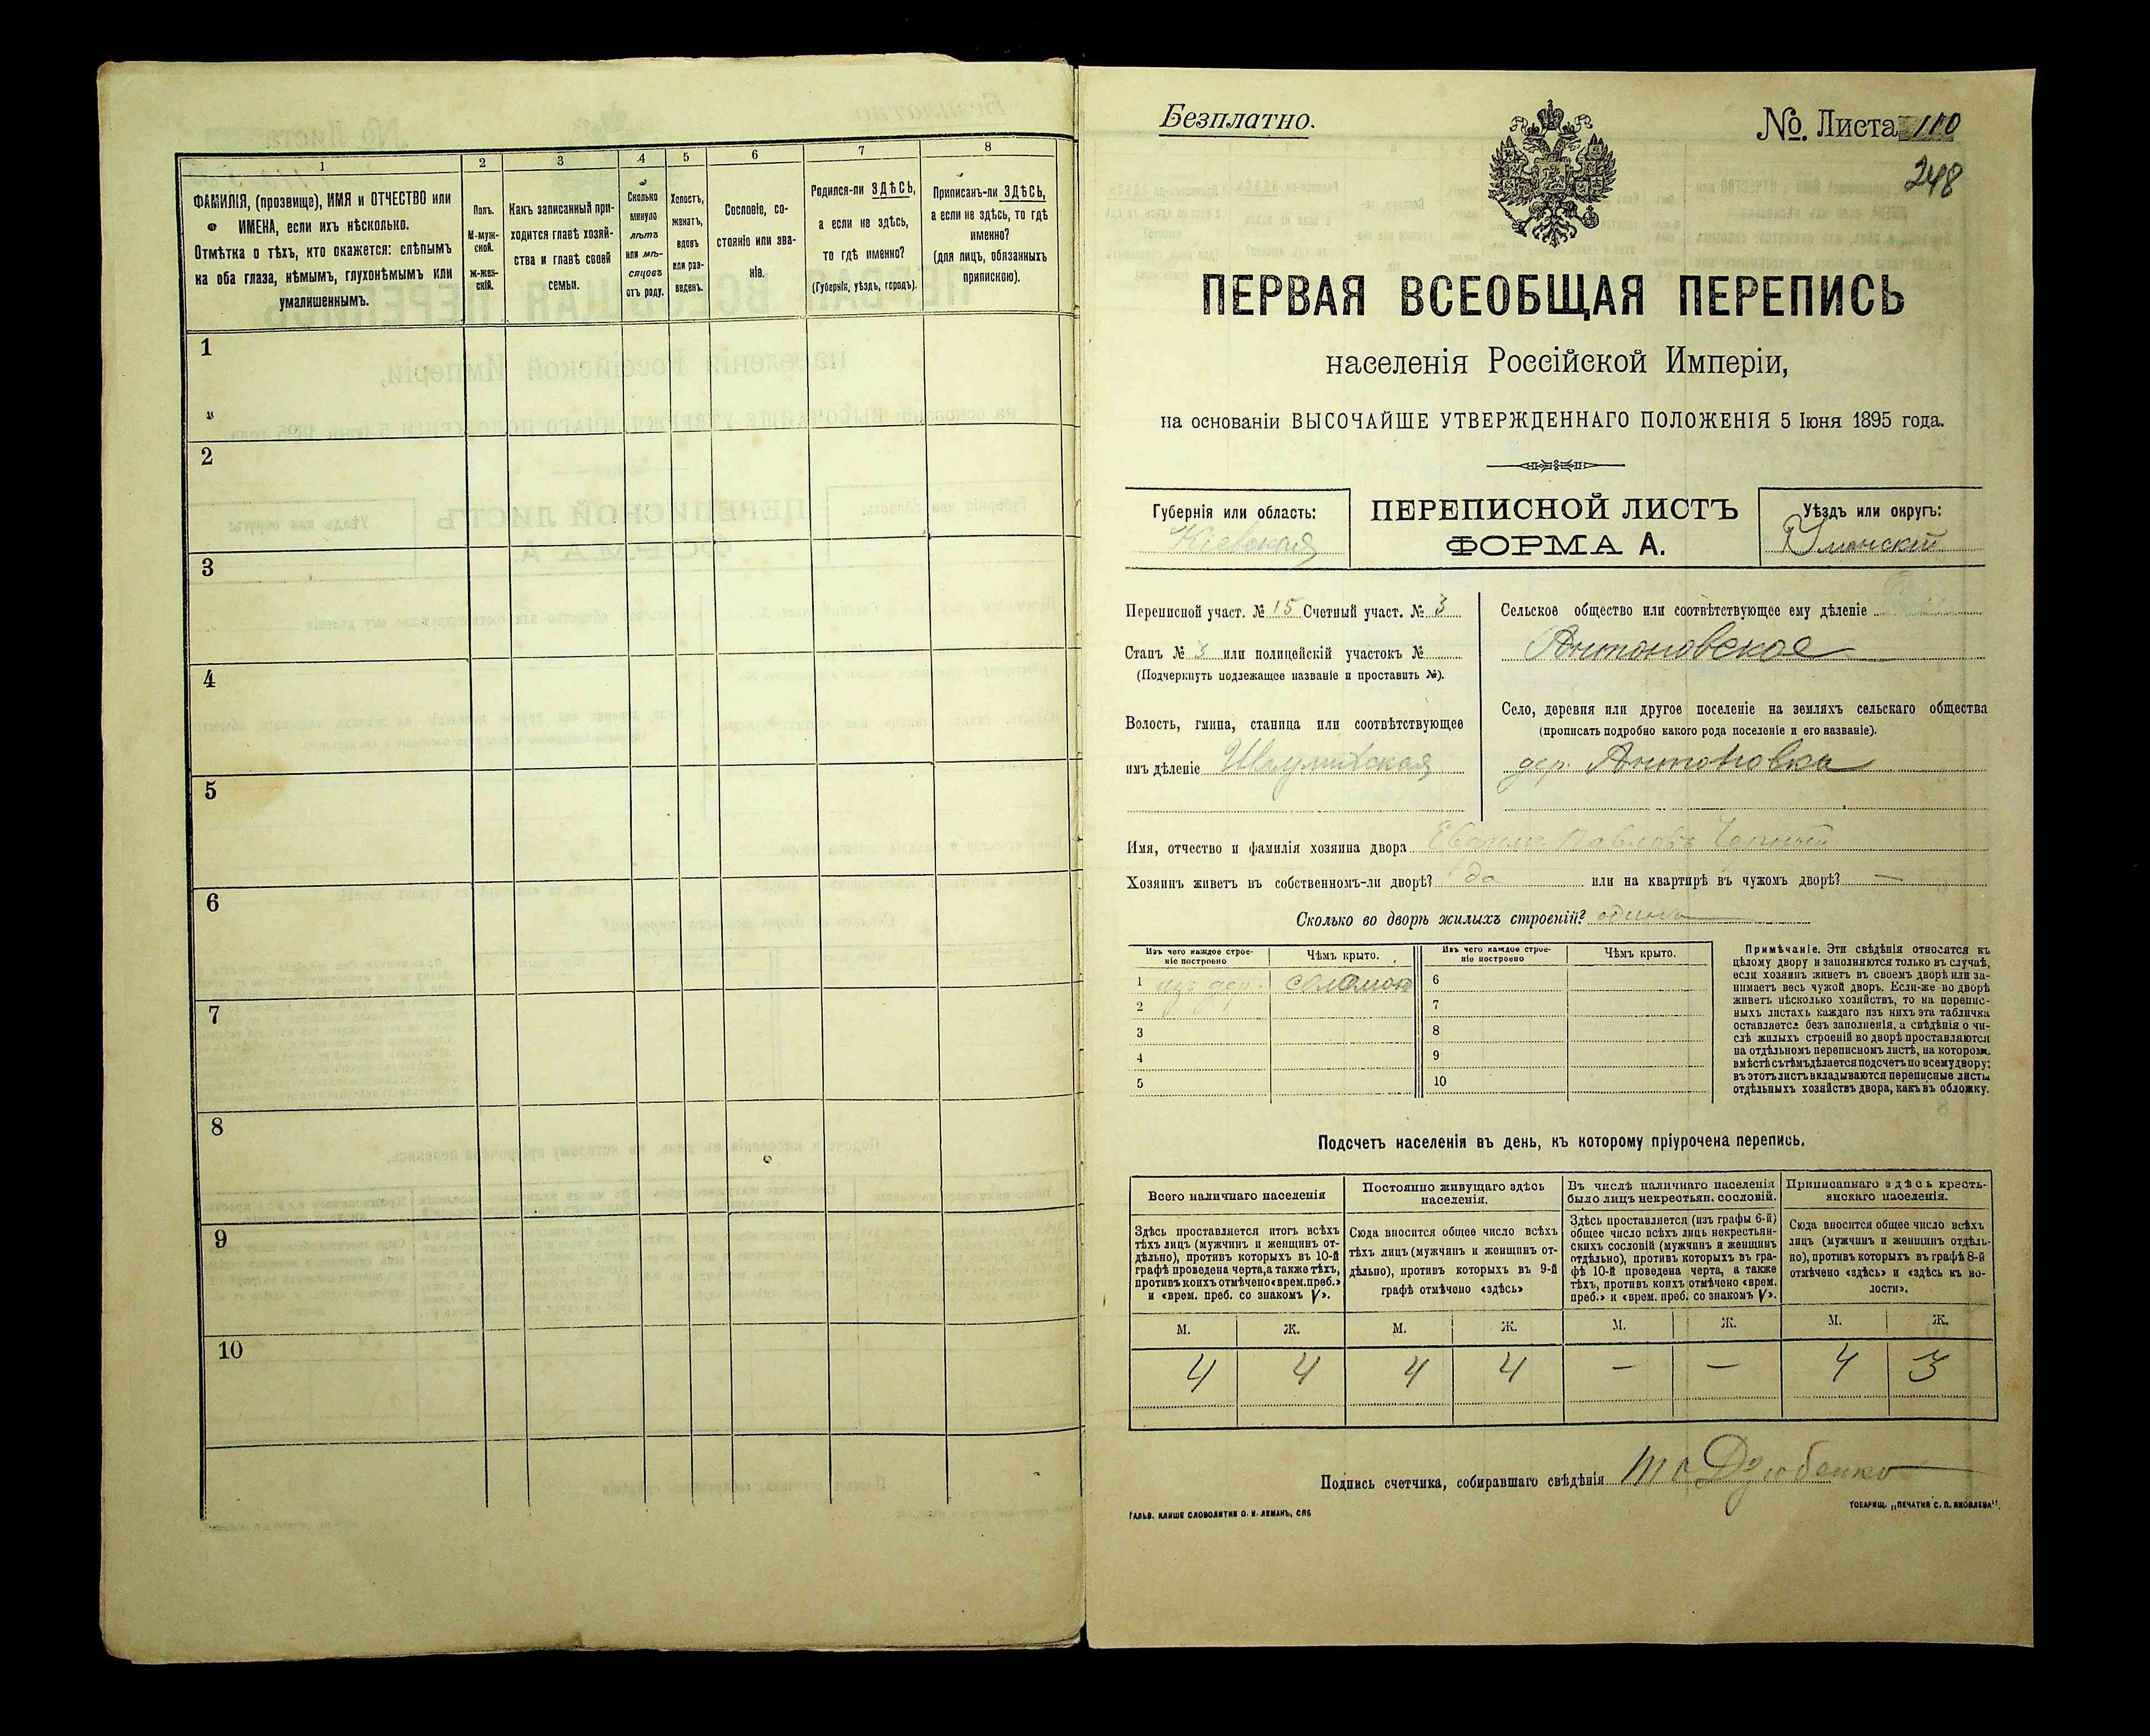 1
ФАМИЛІЯ, (прозвище), ИМЯ и ОТЧЕСТВО или
ИМЕНА, если ихъ нѣсколько.
Отмѣтка о тѣхъ, кто окажется: слѣпымъ
на оба глаза, нѣмымъ, глухонѣмымъ или
умалишеннымъ.
2
Полъ.
М-муж-
ской.
Ж-жен-
скій.
3
Какъ записанный при-
ходится главѣ хозяй-
ства и главѣ своей
семьи.
4
Сколько
минуло
лѣтъ
или мѣ-
сяцевъ
отъ роду.
5
Холостъ,
женатъ,
вдовъ
или раз-
веденъ.
6
Сословіе, со-
стояніе или зва-
ніе.
7
Родился-ли ЗДѢСЬ,
а если не здѣсь,
то гдѣ именно?
(Губернія, уѣздъ, городъ).
8
Приписанъ-ли ЗДѢСЬ,
а если не здѣсь, то гдѣ
именно?
(для лицъ, обязанныхъ
припискою).
1
2
3
4
5
6
7
8
9
10
Безплатно.
№. Листа 110
248
ПЕРВАЯ ВСЕОБЩАЯ ПЕРЕПИСЬ
населенія Россійской Имперіи,
на основаніи ВЫСОЧАЙШЕ УТВЕРЖДЕННАГО ПОЛОЖЕНІЯ 5 Іюня 1895 года.
Губернія или область:
Кіевская
ПЕРЕПИСНОЙ ЛИСТЪ
ФОРМА А.
Уѣздъ или округъ:
Уманскій
Переписной участ. № 15 Счетный участ. № 3
Станъ № 3 или полицейскій участокъ №
(Подчеркнуть подлежащее названіе и проставить №).
Волость, гмина, станица или соотвѣтствующее
имъ дѣленіе
Сельское общество или соотвѣтствующее ему дѣленіе
Антоновское
Село, деревня или другое поселеніе на земляхъ сельскаго общества
(прописать подробно какого рода поселеніе и его названіе).
дер. Антоновка
Имя, отчество и фамилія хозяина двора Павловъ Черный
Хозяинъ живетъ въ собственномъ-ли дворѣ? да или на квартирѣ въ чужомъ дворѣ? —
Сколько во дворѣ жилыхъ строеній? одинъ
Изъ чего каждое строе-
ніе построено
Чѣмъ крыто.
Изъ чего каждое строе-
ніе построено
Чѣмъ крыто.
1 изъ дер. соломою
2
3
4
5
6
7
8
9
10
Примѣчаніе. Эти свѣдѣнія относятся къ
цѣлому двору и заполняются только въ случаѣ,
если хозяинъ живетъ въ своемъ дворѣ или за-
нимаетъ весь чужой дворъ. Если-же во дворѣ
живетъ нѣсколько хозяйствъ, то на перепис-
ныхъ листахъ каждаго изъ нихъ эта табличка
оставляется безъ заполненія, а свѣдѣнія о чи-
слѣ жилыхъ строеній во дворѣ проставляются
на отдѣльномъ переписномъ листѣ, на которомъ
вмѣстѣ съ тѣмъ дѣлается подсчетъ по всему двору;
въ этотъ листъ вкладываются переписные листы
отдѣльныхъ хозяйствъ двора, какъ въ обложку.
Подсчетъ населенія въ день, къ которому пріурочена перепись.
Всего наличнаго населенія
Здѣсь проставляется итогъ всѣхъ
тѣхъ лицъ (мужчинъ и женщинъ от-
дѣльно), противъ которыхъ въ 10-й
графѣ проведена черта, а также тѣхъ,
противъ коихъ отмѣчено «врем. преб.»
и «врем. преб. со знакомъ V».
Постоянно живущаго здѣсь
населенія.
Сюда вносится общее число всѣхъ
тѣхъ лицъ (мужчинъ и женщинъ от-
дѣльно), противъ которыхъ въ 9-й
графѣ отмѣчено «здѣсь»
Въ числѣ наличнаго населенія
было лицъ некрестьян. сословій.
Здѣсь проставляется (изъ графы 6-й)
общее число всѣхъ лицъ некрестьян-
скихъ сословій (мужчинъ и женщинъ
отдѣльно), противъ которыхъ въ гра-
фѣ 10-й проведена черта, а также
тѣхъ, противъ коихъ отмѣчено «врем.
преб.» и «врем. преб. со знакомъ V».
Приписаннаго здѣсь кресть-
янскаго населенія.
Сюда вносится общее число всѣхъ
лицъ (мужчинъ и женщинъ отдѣль-
но), противъ которыхъ въ графѣ 8-й
отмѣчено «здѣсь» и «здѣсь къ во-
лости».
М. Ж. М. Ж. М. Ж. М. Ж.
4 4 4 4 — — 4 3
Подпись счетчика, собиравшаго свѣдѣнія Дзюбенко
ГАЛЬВ. КЛИШЕ СЛОВОЛИТНИ О. И. ЛЕМАНЪ, СПБ
ТОВАРИЩ. „ПЕЧАТНЯ С. П. ЯКОВЛЕВА".